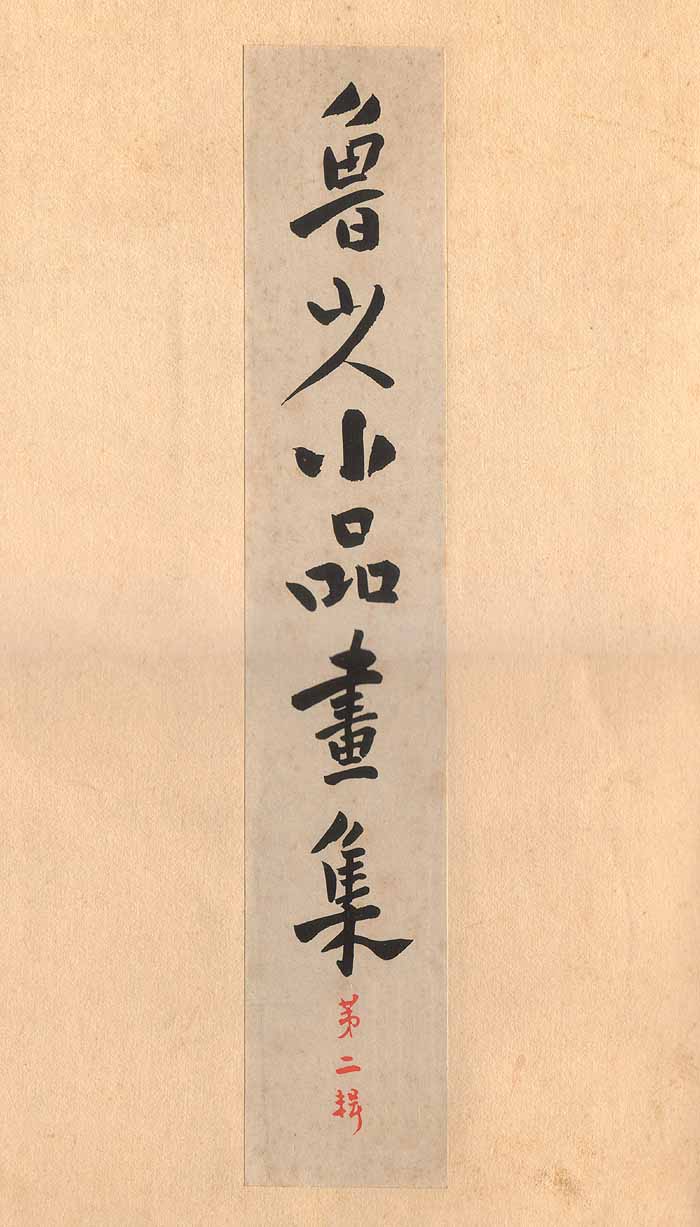 魯山人小品畫集
第二輯